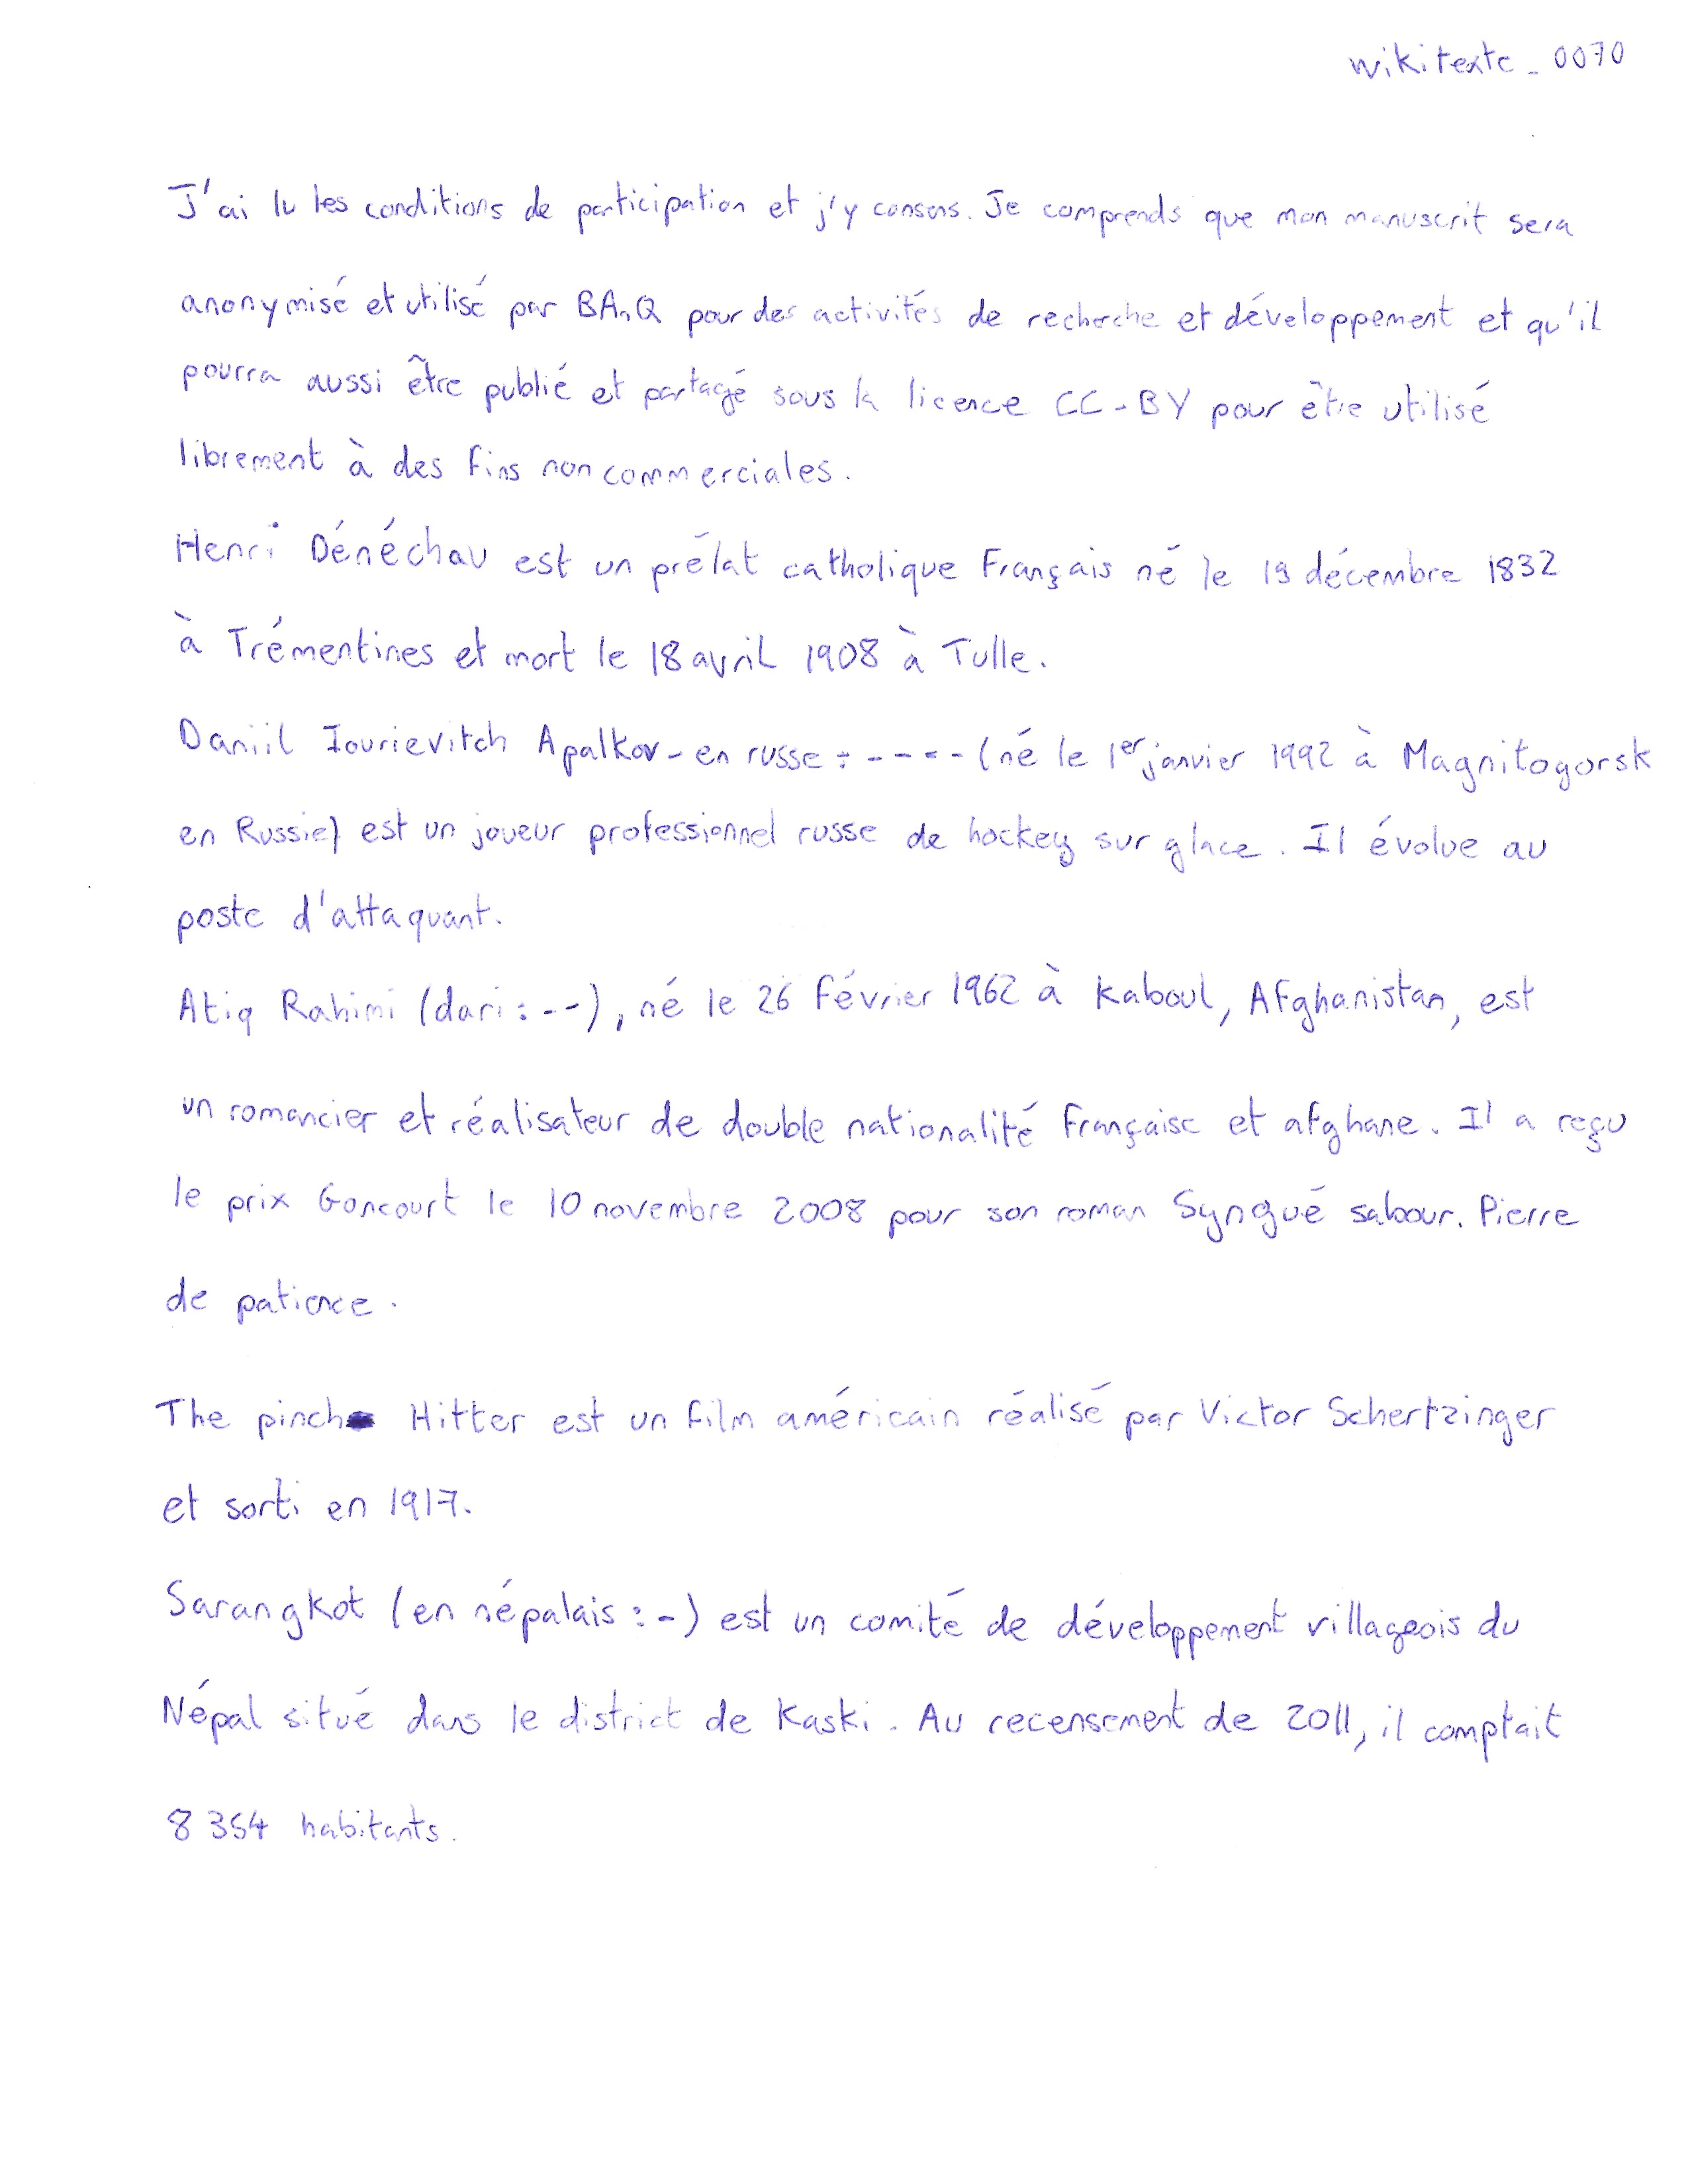 wikitexte_0070
J'ai lu les conditions de participation et j'y consens. Je comprends que mon manuscrit sera
anonymisé et utilisé par BAnQ pour des activités de recherche et développement et qu'il
pourra aussi être publié et partagé sous la licence CC-BY pour être utilisé
librement à des fins non commerciales.
Henri Dénéchau est un prélat catholique Français né le 19 décembre 1832
à Trémentines et mort le 18 avril 1908 à Tulle.
Daniil Iourievitch Apalkov - en russe : ---- (né le 1er janvier 1992 à Magnitogorsk
en Russie) est un joueur professionnel russe de hockey sur glace. Il évolue au
poste d'attaquant.
Atiq Rahimi (dari : --), né le 26 février 1962 à Kaboul, Afghanistan, est
un romancier et réalisateur de double nationalité française et afghane. Il a reçu
le prix Goncourt le 10 novembre 2008 pour son roman Syngué sabour. Pierre
de patience.
The pinch Hitter est un film américain réalisé par Victor Schertzinger
et sorti en 1917.
Sarangkot (en népalais : -) est un comité de développement villageois du
Népal situé dans le district de Kaski. Au recensement de 2011, il comptait
8 354 habitants.